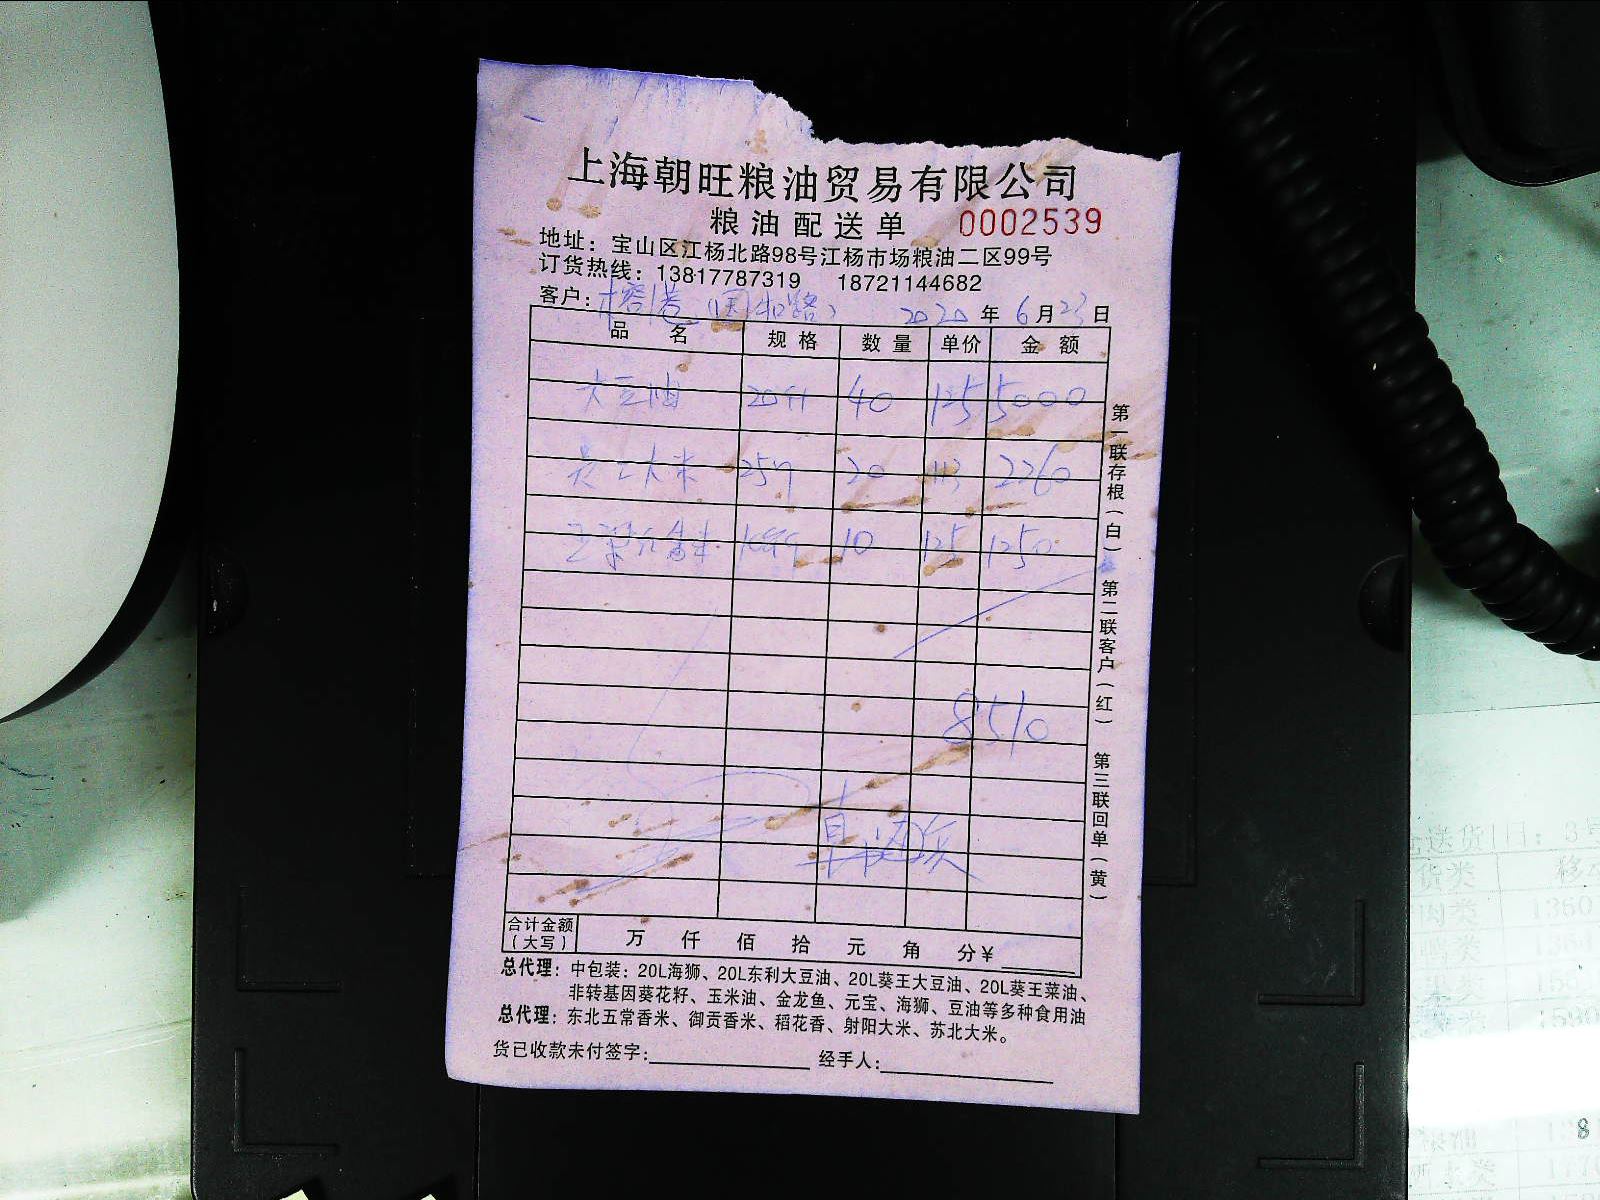 上海朝旺粮油贸易有限公司
粮油配送单 0002539
地址：宝山区江杨北路98号江杨市场粮油二区99号
订货热线：13817787319 18721144682
客户： (国和路) 2020年6月23日
品名 规格 数量 单价 金额
大豆油 20升 40 125 5000
大米 25 20 113 2260
10 125 1250
8510
合计金额（大写） 万 仟 佰 拾 元 角 分¥
总代理：中包装：20L海狮、20L东利大豆油、20L葵王大豆油、20L葵王菜油、
非转基因葵花籽、玉米油、金龙鱼、元宝、海狮、豆油等多种食用油
总代理：东北五常香米、御贡香米、稻花香、射阳大米、苏北大米。
货已收款未付签字： 经手人：
第一联存根（白） 第二联客户（红） 第三联回单（黄）
送货 日：3号
货类
肉类 1350